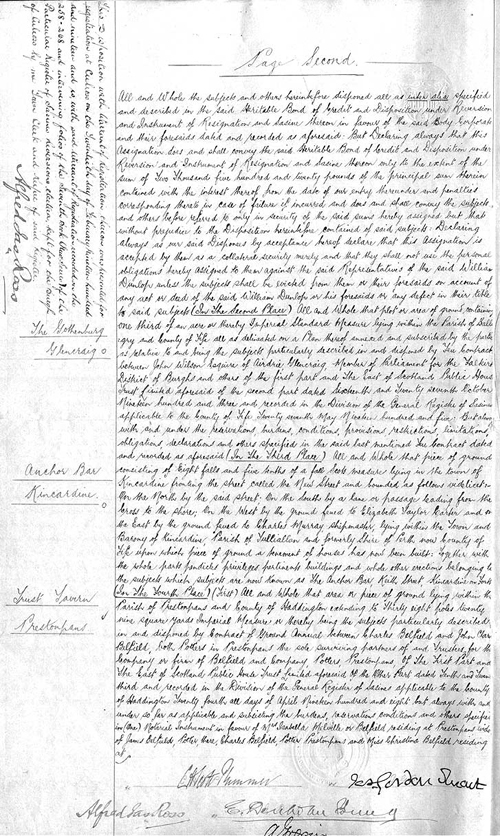 Page Second.
All and Whole the subjects and others hereinbefore disponed all as inter alia specified
and described in the said Heritable Bond of Credit and Disposition under Reversion
and Instrument of Resignation and Sasine thereon in favour of the said Body Corporate
and their foresaids dated and recorded as aforesaid. But Declaring always that this
Assignation does and shall convey the said Heritable Bond of Credit and Disposition under
Reversion and Instrument of Resignation and Sasine thereon only to the extent of the
sum of Two Thousand five hundred and twenty pounds of the principal sum therein
contained with the interest thereof from the date of our entry thereunto and penalties
corresponding thereto in case of failure if incurred and does and shall convey the subjects
and others before referred to only in security of the said sums hereby assigned but that
without prejudice to the Disposition hereinbefore contained of said subjects: Declaring
always as our said Disponees by acceptance hereof declare that this Assignation is
accepted by them as a collateral security merely and that they shall not use the personal
obligations hereby assigned to them against the said Representatives of the said William
Dunlop unless the subjects shall be evicted from them or their foresaids on account of
any act or deed of the said William Dunlop or his foresaids or any defect in their title
to said subjects (In The Second Place) All and Whole that plot or area of ground containing
one third of an acre or thereby Imperial Standard Measure lying within the Parish of
and County of Fife all as delineated on a Plan thereof annexed and subscribed by the parties
as relative to and being the subjects particularly described in and disponed by Feu Contract
between John Wilson Esquire of Airdrie Glencraig Member of Parliament for the
District of Burghs and others of the first part and The East of Scotland Public House
Trust Limited aforesaid of the second part dated Sixteenth and Twenty seventh October
Nineteen hundred and three and recorded in the Division of the General Register of Sasines
applicable to the County of Fife Twenty seventh May Nineteen hundred and five But always
with and under the reservations, burdens, conditions, provisions, restrictions, limitations,
obligations, declarations and others specified in the said last mentioned Feu Contract dated
and recorded as aforesaid (In The Third Place) All and Whole that piece of ground
consisting of Eight falls and five tenths of a fall Scots measure lying in the town of
Kincardine fronting the street called the New Street and bounded as follows videlicet:-
On the North by the said street On the South by a lane or passage leading from the
Cross to the shore, On the West by the ground feued to Elizabeth Taylor and on
the East by the ground feued to Charles Murray shipmaster, lying within the Town and
Barony of Kincardine, Parish of Tulliallan and formerly Shire of Perth now County of
Fife upon which piece of ground a tenement of houses has now been built: Together with
the whole parts pendicles privileges pertinents buildings and whole other erections belonging to
the subjects which subjects are now known as The Anchor Bar Keith Street Kincardine on Forth
(In The Fourth Place) (First) All and Whole that area or piece of ground lying within the
Parish of Prestonpans and County of Haddington extending to Thirty eight poles twenty
nine square yards Imperial Measure or thereby being the subjects particularly described
in and disponed by Contract of Ground Annual between Charles Belfield and John Clark
Belfield, both Potters in Prestonpans the sole surviving partners of and Trustees for the
Company or firm of Belfield and Company Potters Prestonpans Of The First Part and
The East of Scotland Public House Trust Limited aforesaid of the Other Part dated Tenth and Twenty
third and recorded in the Division of the General Register of Sasines applicable to the County
of Haddington Twenty fourth all days of April Nineteen hundred and eight but always with and
under so far as applicable and subsisting the burdens, reservations conditions and others specified
in (One) Notarial Instrument in favour of Mrs Isabella Melville or Belfield, residing at Prestonpans widow
of James Belfield, Potter there, Charles Belfield, Potter Prestonpans and Miss Christina Belfield residing
The Gothenburg
Glencraig
Anchor Bar
Kincardine
Trust Tavern
Prestonpans
Alfred Jas Ross
Alfred Jas Ross